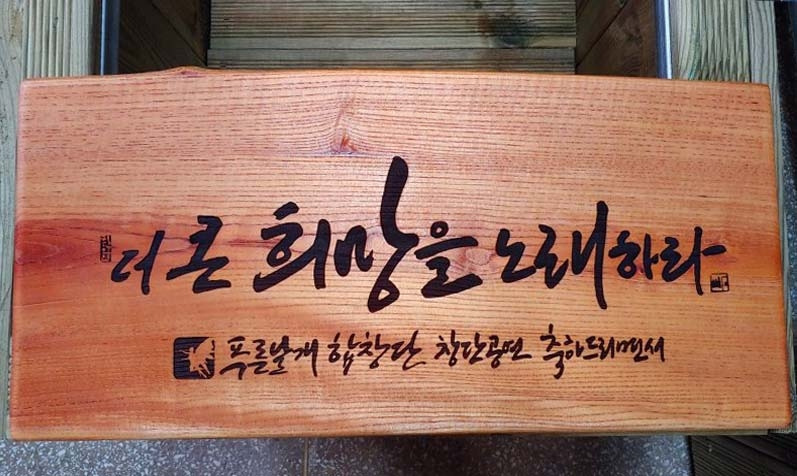 더 큰 희망을 노래하라
푸른날개 합창단 창단공연 축하드리면서